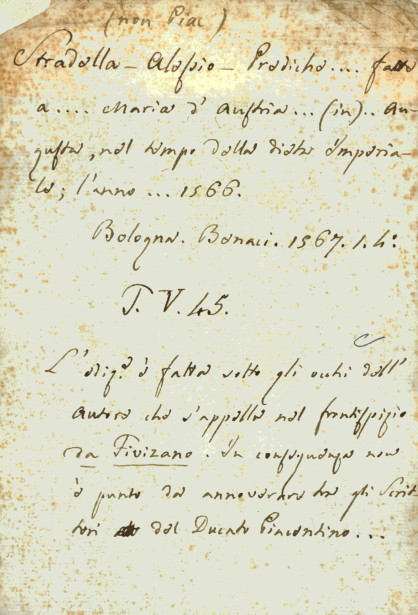 (non Piac)
Stradella - Aloisio - Prediche .... fatte
a .... Maria d'Austria ... (in) .. Au-
gusta, nel tempo della dieta imperia-
le; l'anno ... 1566.
Bologna. Benaci. 1567. 1. 4:
T. V. 45.
L'ediz.e è fatta sotto gli occhi dell'
autore che s'appella nel frontispizio
da Fivizano in conseguenza non
è punto da annoverare tra gli Scrit
tori del Ducato Piacentino ...